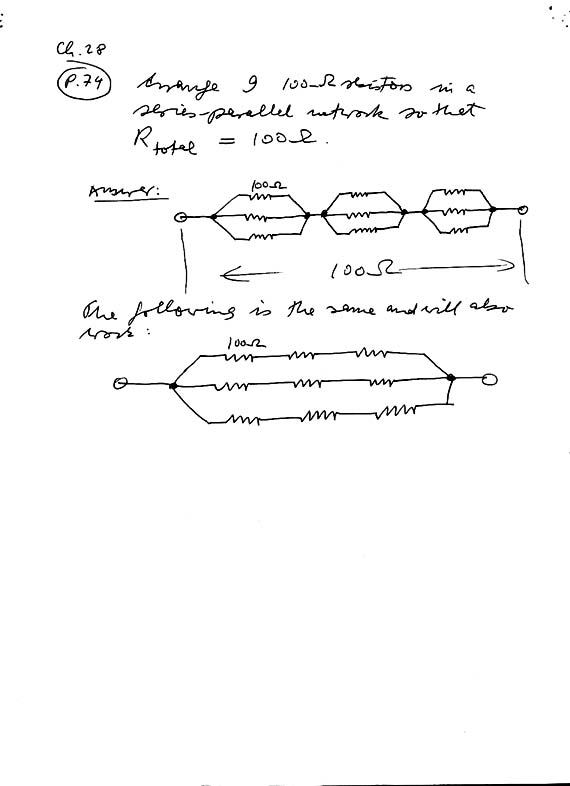 Ch. 28
P.74 Arrange 9 100-Ω resistors in a
series-parallel network so that
R total = 100Ω.
Answer:
100Ω
100Ω
The following is the same and will also
work:
100Ω